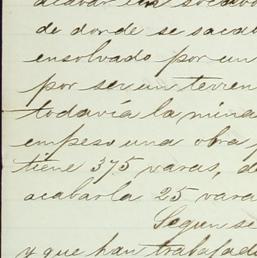 acabar un socavo
de donde se sacab
ensolvado por un
por ser un terren
todavía la mina
empeso una obra p
tiene 375 varas, d
acabarla 25 vara
Segun se
y que han trabajado